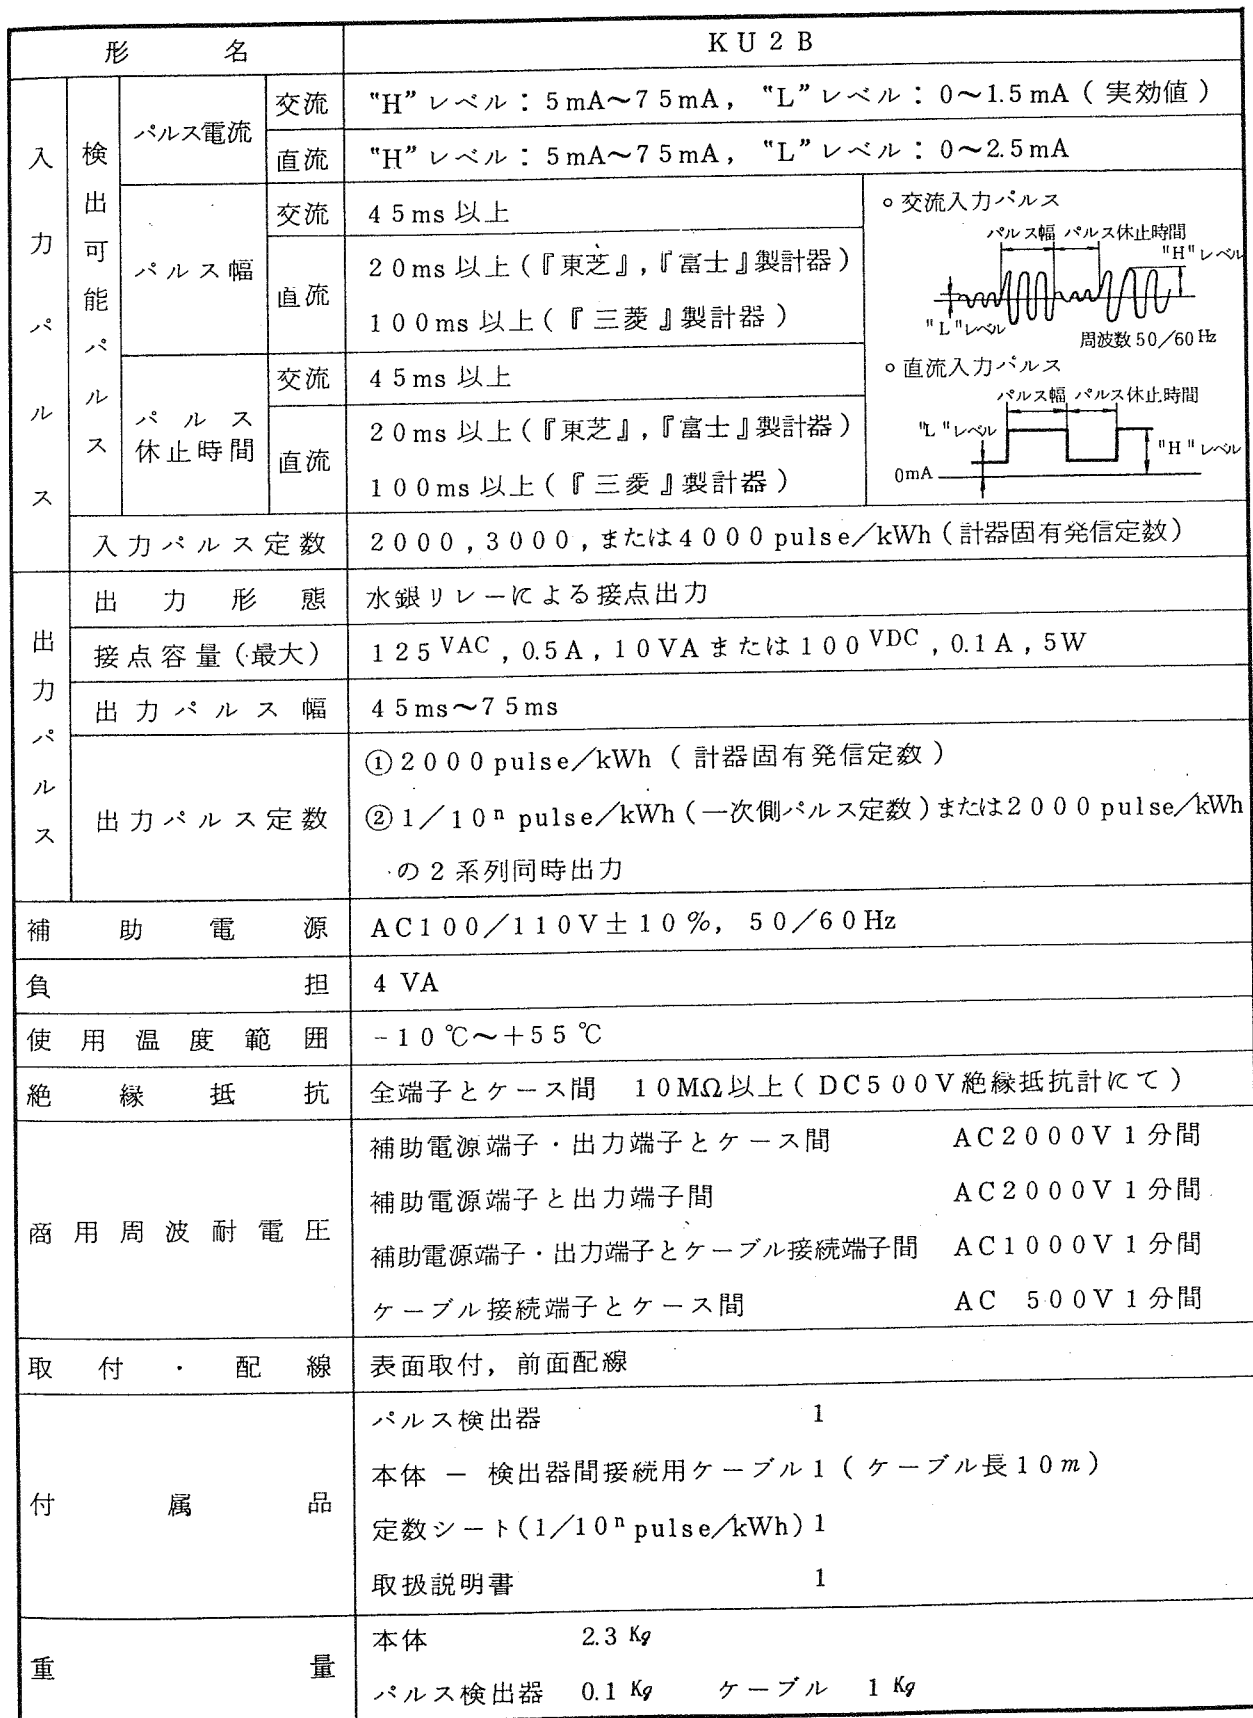 形名 KU2B
入力パルス 検出可能パルス パルス電流 交流 "H"レベル：5mA～75mA，"L"レベル：0～1.5mA（実効値）
直流 "H"レベル：5mA～75mA，"L"レベル：0～2.5mA
パルス幅 交流 45ms以上
直流 20ms以上（『東芝』，『富士』製計器）
100ms以上（『三菱』製計器）
パルス休止時間 交流 45ms以上
直流 20ms以上（『東芝』，『富士』製計器）
100ms以上（『三菱』製計器）
∘交流入力パルス
パルス幅 パルス休止時間
"H"レベル
"L"レベル
周波数50／60Hz
∘直流入力パルス
パルス幅 パルス休止時間
"L"レベル
"H"レベル
0mA
入力パルス定数 2000，3000，または4000pulse／kWh（計器固有発信定数）
出力パルス 出力形態 水銀リレーによる接点出力
接点容量（最大） 125VAC，0.5A，10VAまたは100VDC，0.1A，5W
出力パルス幅 45ms～75ms
出力パルス定数 ①2000pulse／kWh（計器固有発信定数）
②1／10ⁿ pulse／kWh（一次側パルス定数）または2000pulse／kWh
の2系列同時出力
補助電源 AC100／110V±10％，50／60Hz
負担 4VA
使用温度範囲 −10℃～＋55℃
絶縁抵抗 全端子とケース間 10MΩ以上（DC500V絶縁抵抗計にて）
商用周波耐電圧 補助電源端子・出力端子とケース間 AC2000V1分間
補助電源端子と出力端子間 AC2000V1分間
補助電源端子・出力端子とケーブル接続端子間 AC1000V1分間
ケーブル接続端子とケース間 AC 500V1分間
取付・配線 表面取付，前面配線
付属品 パルス検出器 1
本体－検出器間接続用ケーブル1（ケーブル長10m）
定数シート（1／10ⁿ pulse／kWh）1
取扱説明書 1
重量 本体 2.3Kg
パルス検出器 0.1Kg ケーブル 1Kg